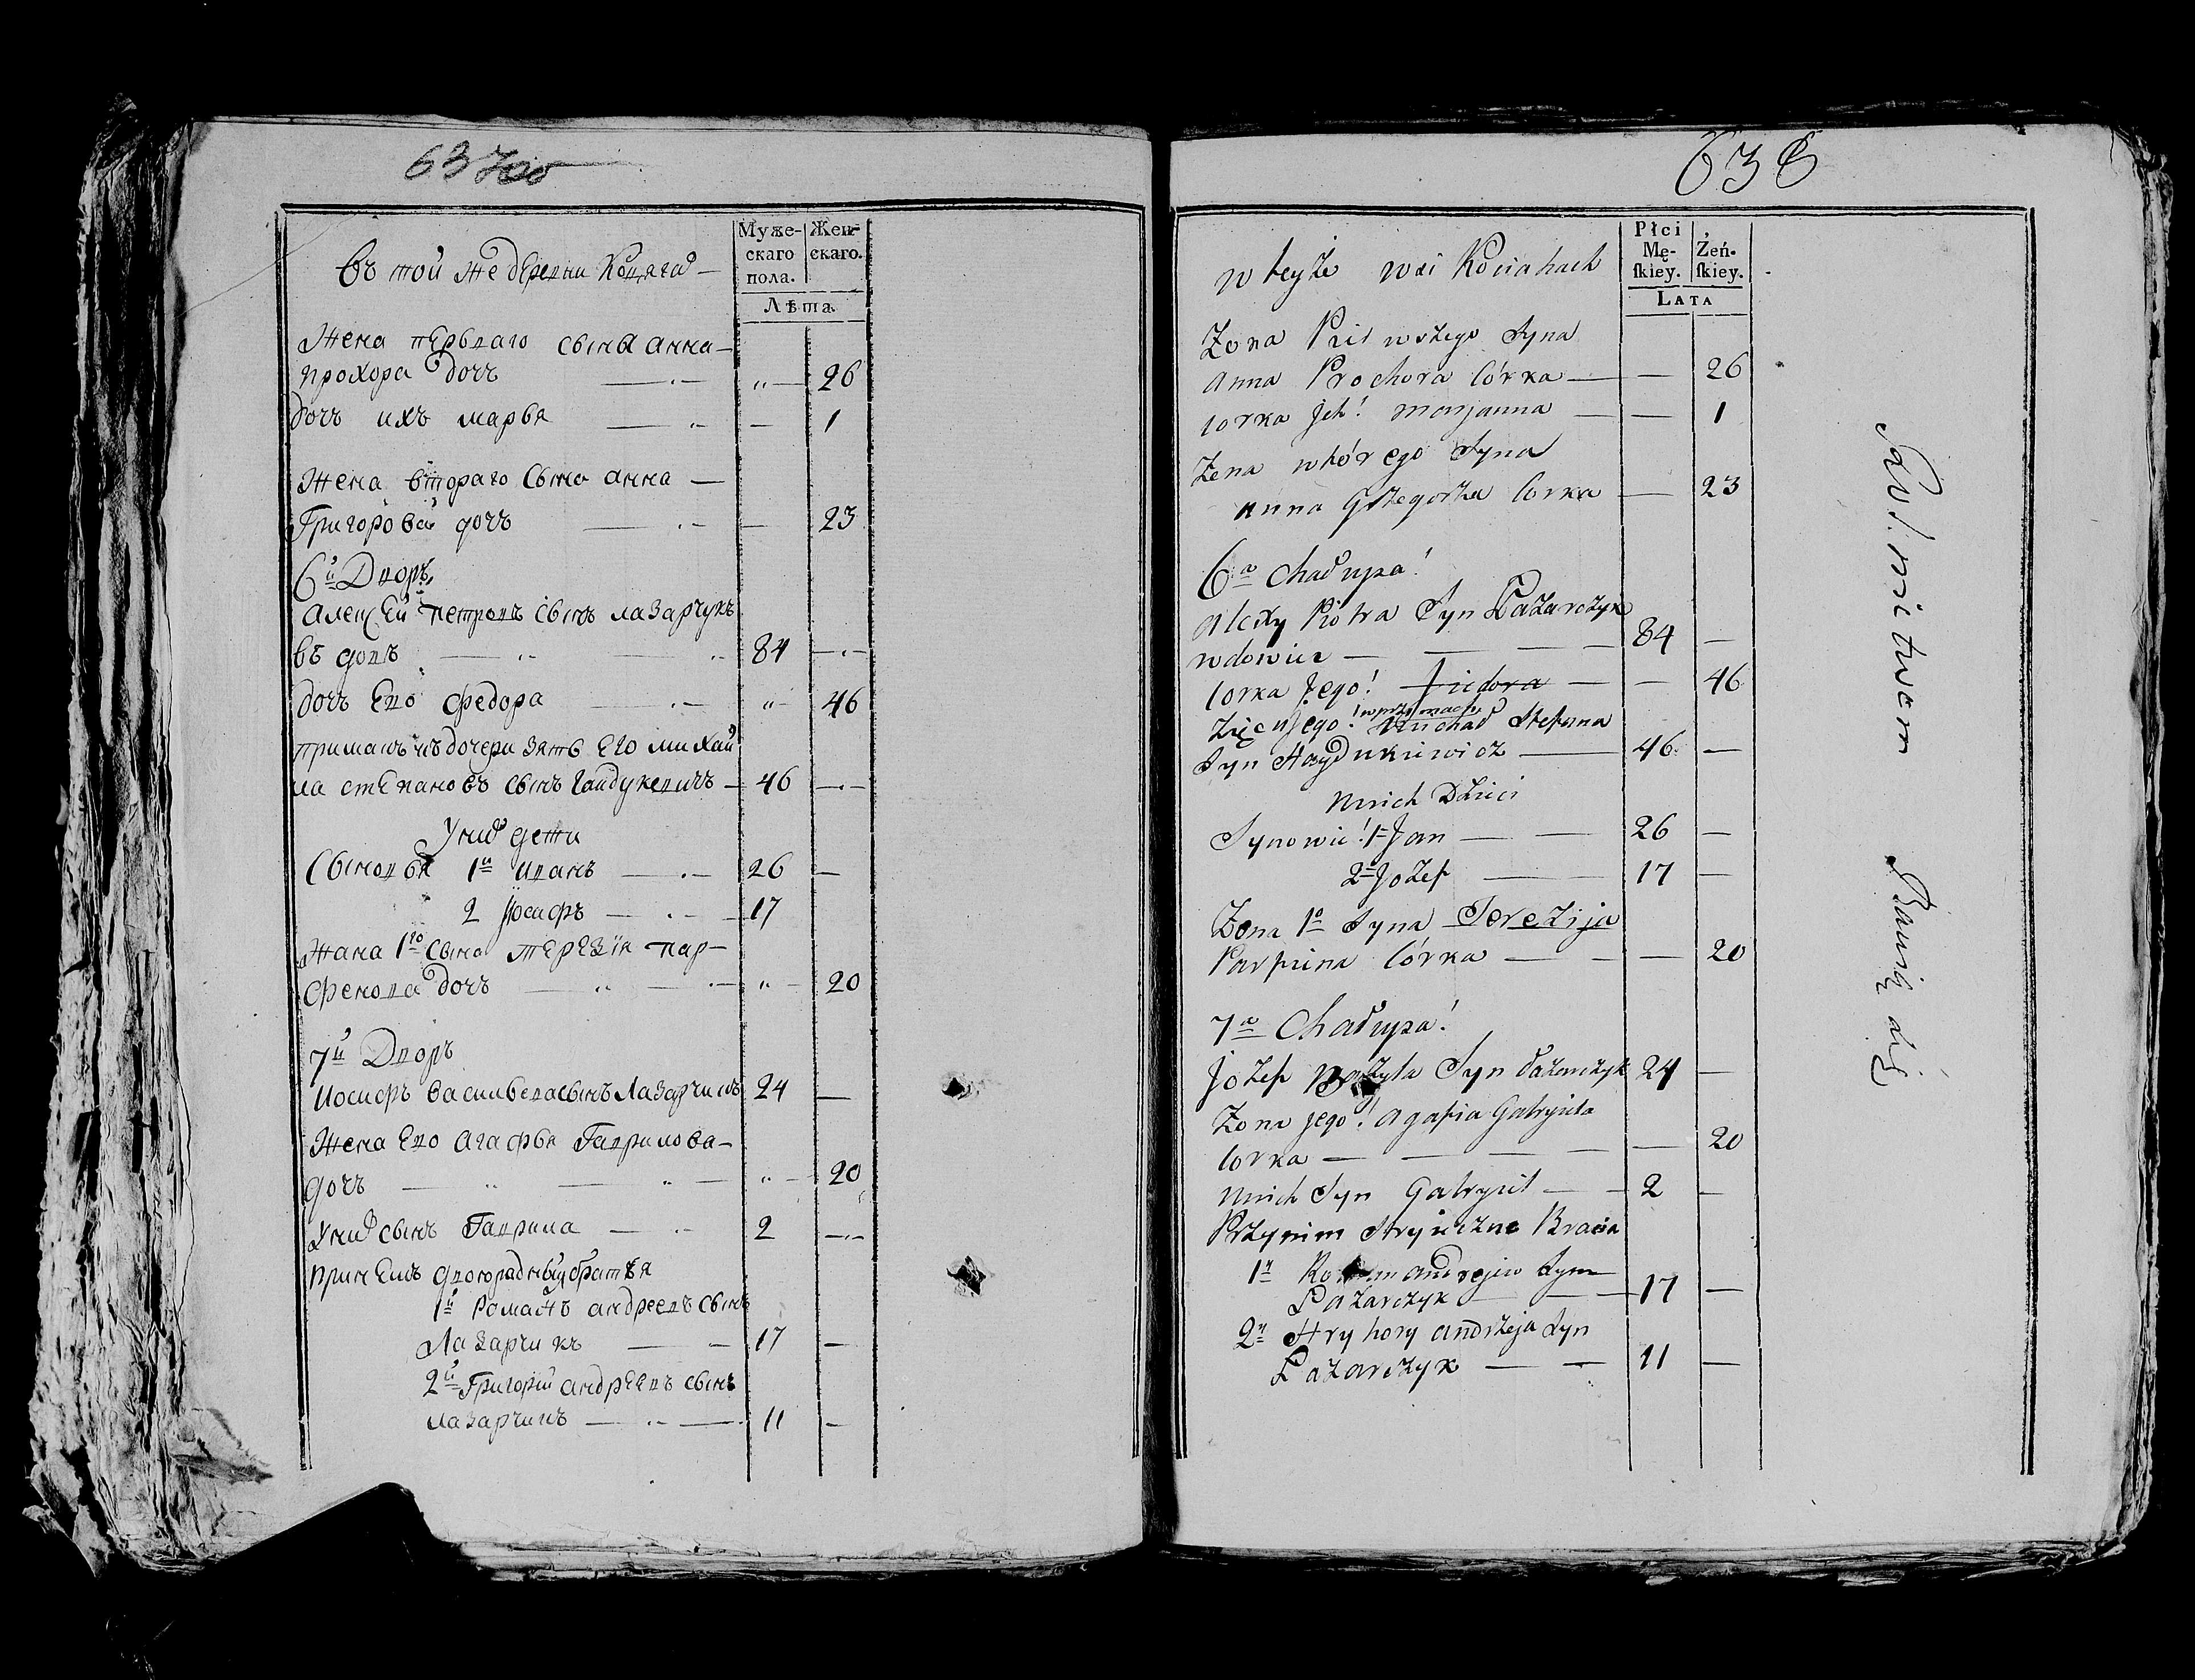 63
въ той же деревни Коцягахъ
Муже-
скаго
пола.
Жен-
скаго.
Лѣта
Жена первaго сына анна
прохора дочь — " — 26
дочь ихъ марья — — 1
Жена втораго сына анна —
Григорова дочь — — 23
6й Дворъ
Алексей петровъ сынъ лазарчукъ
вдовъ — 84 —
дочь Его федора — " 46
приманъ къ дочери зять его михай
ла степановъ сынъ гайдукевичъ — 46 —
У них дети
Сыновья 1й иванъ — 26 —
2 Иосифъ — 17
Жана 1го сына терезiя пар-
фенова дочь — " — 20
7й Дворъ
Иосифъ василъевъ сынъ Лазарчикъ 24 —
Жена Его агафья Гаврилова —
дочь — " — 20
У них сынъ Гаврила — 2 —
при нем двоюродныи братья
1й Романъ андреевъ сынъ
Лазарчикъ — 17 —
2й Григорiй андреевъ сынъ
лазарчикъ — 11 —
638
w teyże wsi Kociahach
Płci
Mę-
ſkiey.
Żeń-
ſkiey.
LATA
Żona Pierwszego Syna
anna Prochora Córka — — 26
Corka Jch! marjanna — — 1
Żena wtórego Syna
anna Grzegorza Corka — 23
6a Chałupa!
alexy Piotra Syn Łazarczyk
wdowiec — 84 —
Corka Jego! Fiedora — — 46
Zięć Jego! w przymach Michał Stefana
Syn Haydukiewicz — 46 —
Unich Dzieci
Synowie! 1 Jan — 26 —
2 Jozef — 17 —
Żona 1o Syna Terezija
Parfiena Córka — — 20
7a Chałupa!
Jozef Wasyla Syn Łazarczyk 24 —
Żona jego! agafia Gabryiela
Corka — — 20
Unich Syn Gabryiel — 2 —
Przynim Stryieczne Bracia
1y Roman andrejew Syn
Łazarczyk — 17 —
2y Hryhory andrzeja Syn
Łazarczyk — 11 —